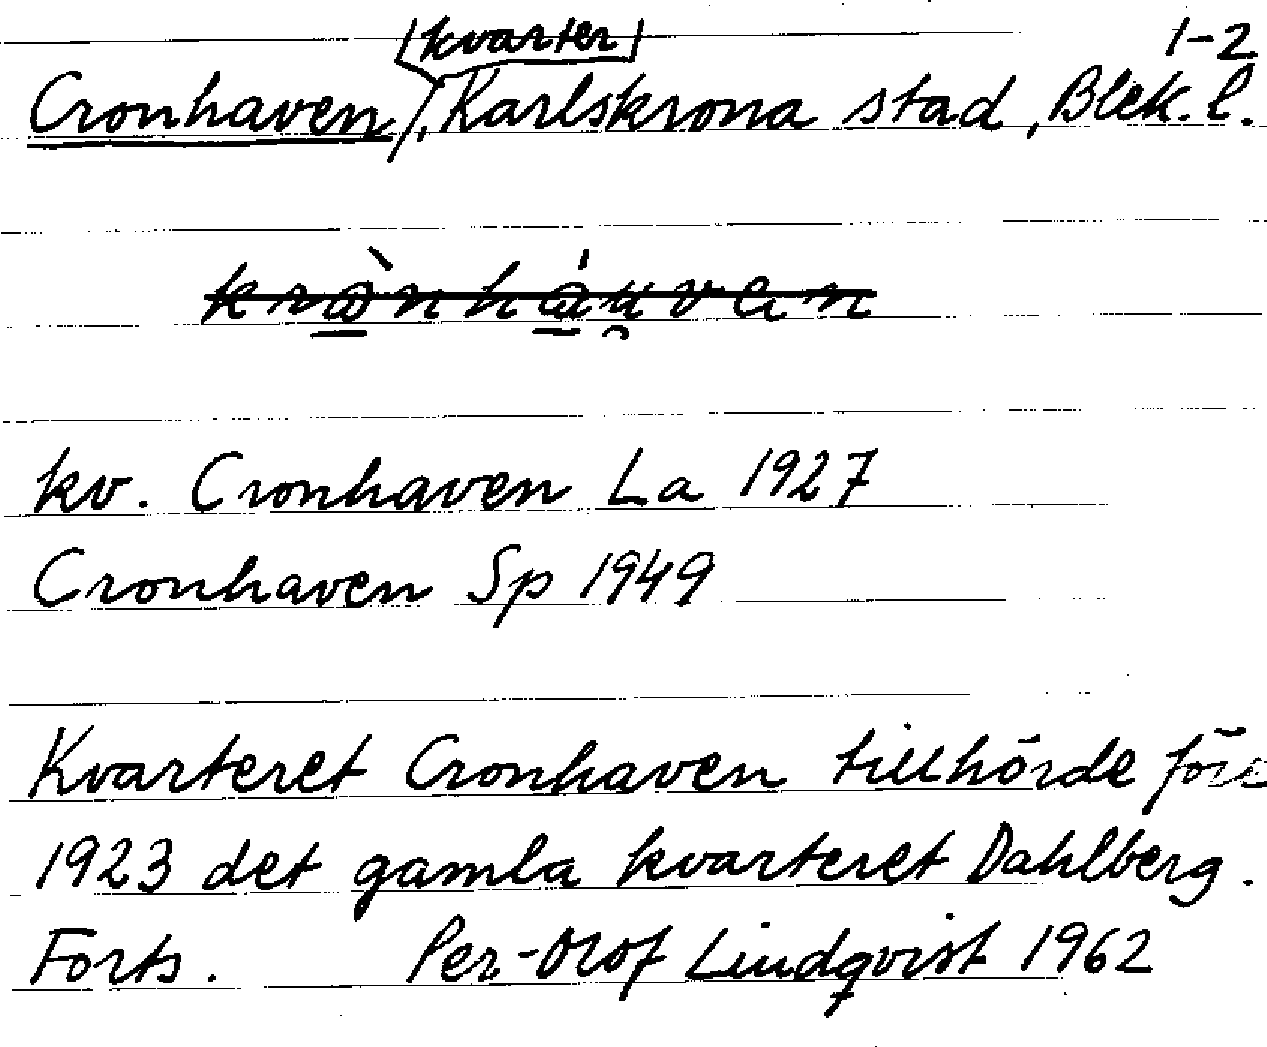 (kvarter) 1-2
Cronhaven, Karlskrona stad, Blek. l.
kv. Cronhaven La 1927
Cronhaven Sp 1949
Kvarteret Cronhaven tillhörde före
1923 det gamla kvarteret Dahlberg.
Forts. Per-Olof Lindqvist 1962